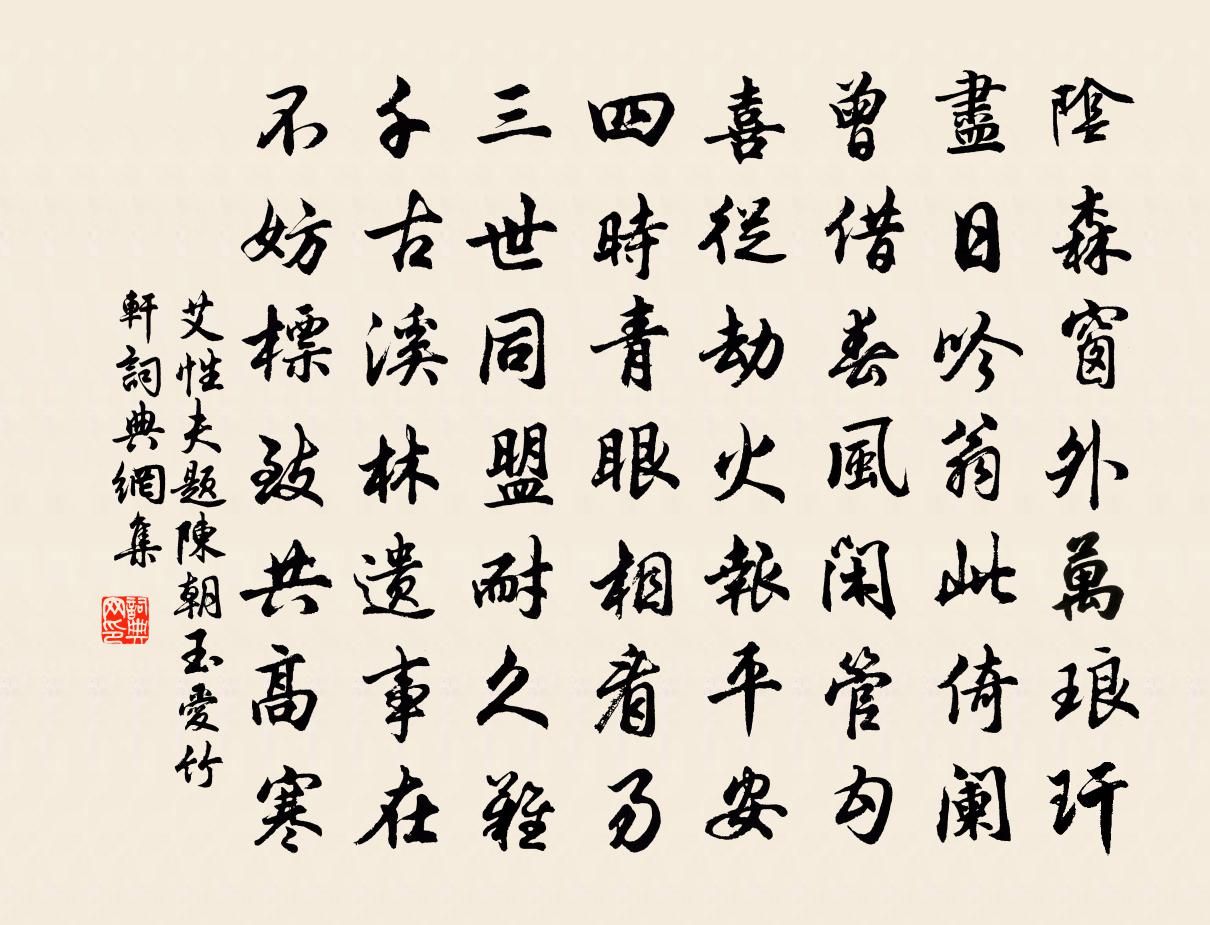 陰森窗外萬琅玕
盡日吟翁此倚闌
曾借春風閑管勾
喜從劫火報平安
四時青眼相看易
三世同盟耐久難
千古溪林遺事在
不妨標致共高寒
艾性夫題陳朝玉愛竹
軒詞典網集
詞典网印